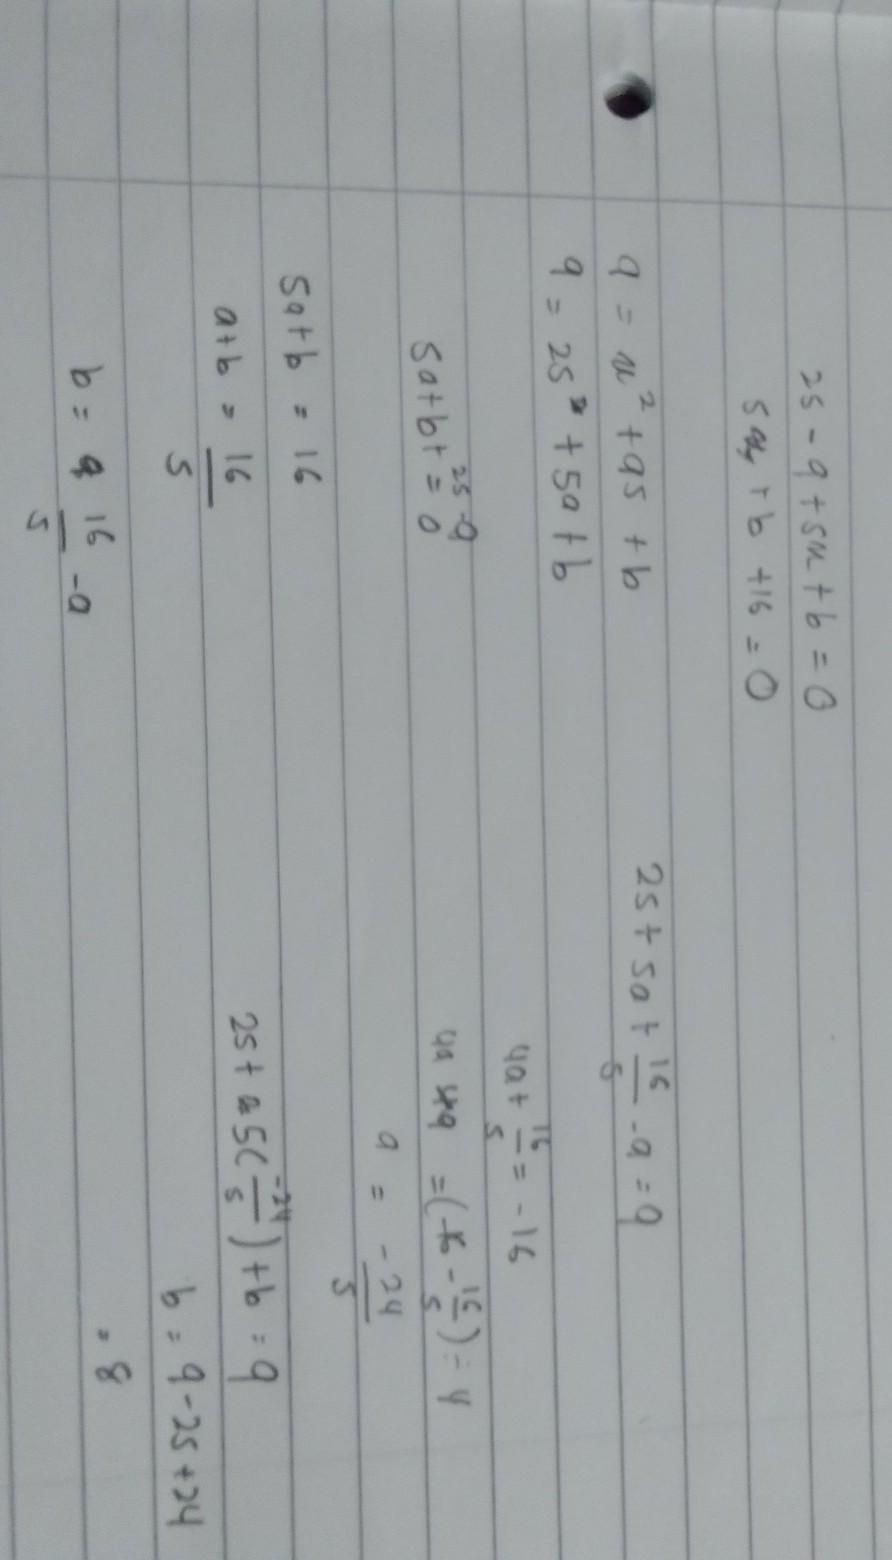 25 - 9 + 5x + b = 0
5a + b + 16 = 0
9 = x² + 95 + b
9 = 25 + 5a + b
5a + b + 25 - 9 = 0
5a + b = 16
a + b = 16/5
b = 16/5 - a
25 + 5a + 16/5 - a = 9
4a + 16/5 = -16
4a = (-16 - 16/5) ÷ 4
a = -24/5
25 + 5(-24/5) + b = 9
b = 9 - 25 + 24
= 8